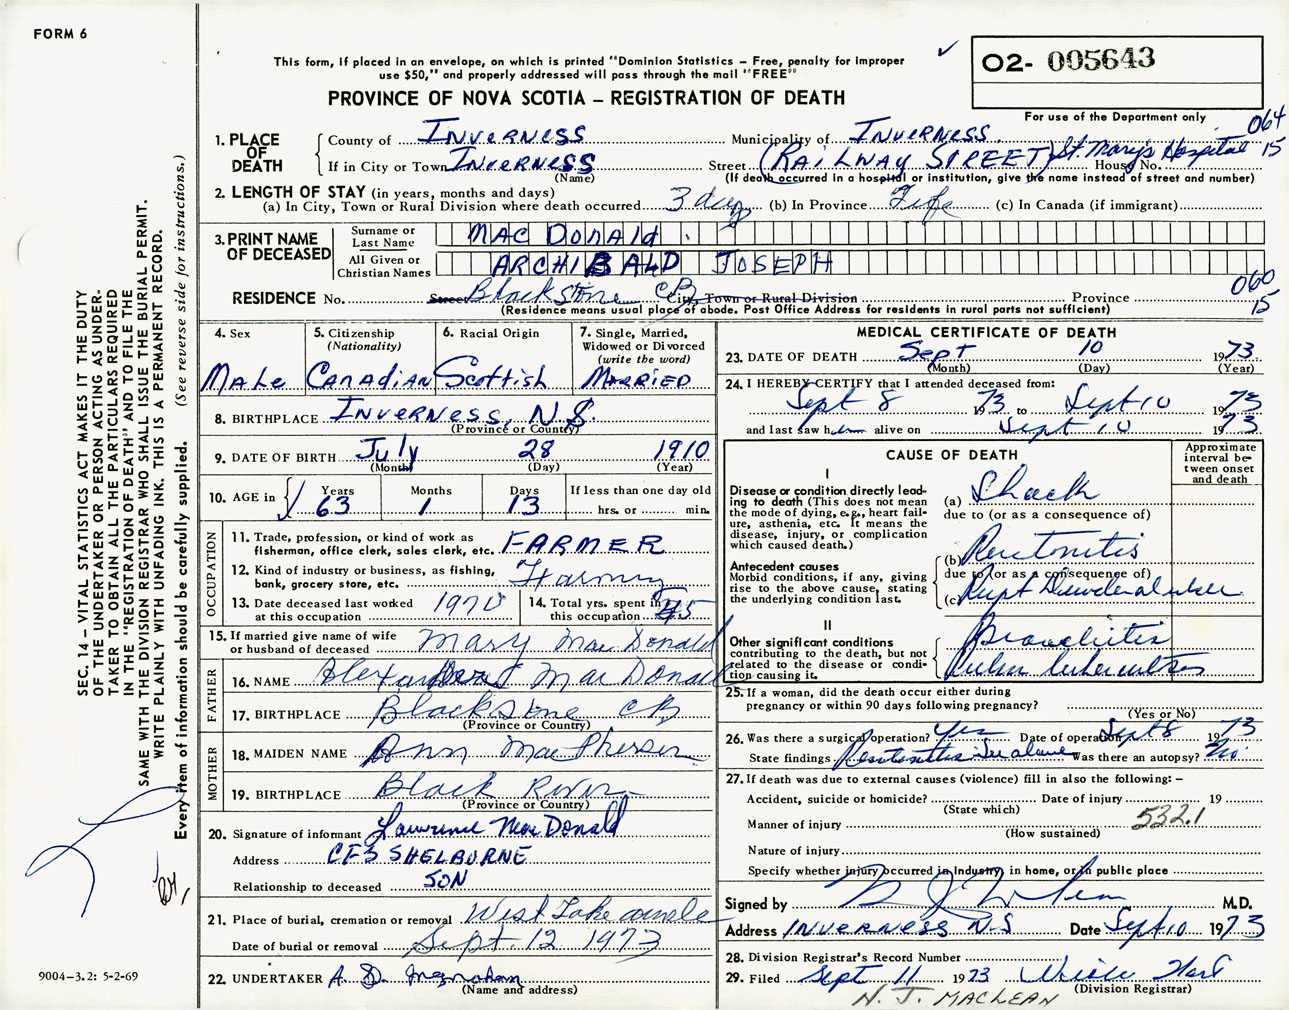 FORM 6
This form, if placed in an envelope, on which is printed "Dominion Statistics – Free, penalty for improper
use $50," and properly addressed will pass through the mail "FREE"
O2- 005643
PROVINCE OF NOVA SCOTIA – REGISTRATION OF DEATH
For use of the Department only
064
15
1. PLACE OF DEATH
County of INVERNESS Municipality of INVERNESS
If in City or Town INVERNESS Street (RAILWAY STREET) St. Mary's Hospital House No.
(Name) (If death occurred in a hospital or institution, give the name instead of street and number)
2. LENGTH OF STAY (in years, months and days)
(a) In City, Town or Rural Division where death occurred 3 days (b) In Province Life (c) In Canada (if immigrant)
3. PRINT NAME OF DECEASED
Surname or Last Name MAC DONALD
All Given or Christian Names ARCHIBALD JOSEPH
060
15
RESIDENCE No. Street Blackstone CB City, Town or Rural Division Province
(Residence means usual place of abode. Post Office Address for residents in rural parts not sufficient)
4. Sex
Male
5. Citizenship
(Nationality)
Canadian
6. Racial Origin
Scottish
7. Single, Married,
Widowed or Divorced
(write the word)
MARRIED
8. BIRTHPLACE INVERNESS, N.S.
(Province or Country)
9. DATE OF BIRTH July 28 1910
(Month) (Day) (Year)
10. AGE in
Years Months Days If less than one day old
63 1 13 hrs. or min.
OCCUPATION
11. Trade, profession, or kind of work as
fisherman, office clerk, sales clerk, etc. FARMER
12. Kind of industry or business, as fishing,
bank, grocery store, etc.
13. Date deceased last worked
at this occupation
14. Total yrs. spent in
this occupation 45
15. If married give name of wife
or husband of deceased Mary MacDonald
FATHER
16. NAME Alexander MacDonald
17. BIRTHPLACE Blackstone CB
(Province or Country)
MOTHER
18. MAIDEN NAME Ann MacPherson
19. BIRTHPLACE Black River
(Province or Country)
20. Signature of informant Lawrence MacDonald
Address CFS SHELBURNE
Relationship to deceased SON
21. Place of burial, cremation or removal West Lake Ainslie
Date of burial or removal Sept 12 1973
22. UNDERTAKER A. D.
(Name and address)
MEDICAL CERTIFICATE OF DEATH
23. DATE OF DEATH Sept 10 1973
(Month) (Day) (Year)
24. I HEREBY CERTIFY that I attended deceased from:
Sept 8 1973 to Sept 10 1973
and last saw him alive on Sept 10 1973
CAUSE OF DEATH
Approximate
interval be-
tween onset
and death
I
Disease or condition directly lead-
ing to death (This does not mean
the mode of dying, e.g., heart fail-
ure, asthenia, etc. It means the
disease, injury, or complication
which caused death.)
(a) Shock
due to (or as a consequence of)
Antecedent causes
Morbid conditions, if any, giving
rise to the above cause, stating
the underlying condition last.
(b) Peritonitis
due to (or as a consequence of)
(c) Rupt Duodenal ulcer
II
Other significant conditions
contributing to the death, but not
related to the disease or condi-
tion causing it.
Bronchitis
Pulm tuberculosis
25. If a woman, did the death occur either during
pregnancy or within 90 days following pregnancy?
(Yes or No)
26. Was there a surgical operation? Yes Date of operation Sept 8 1973
State findings Peritonitis Was there an autopsy? No
27. If death was due to external causes (violence) fill in also the following: –
Accident, suicide or homicide? Date of injury 19
(State which)
Manner of injury 532.1
(How sustained)
Nature of injury
Specify whether injury occurred in industry, in home, or in public place
Signed by M.D.
Address INVERNESS N.S Date Sept 10 1973
28. Division Registrar's Record Number
29. Filed Sept 11 1973
(Division Registrar)
N. J. MACLEAN
SEC. 14 – VITAL STATISTICS ACT MAKES IT THE DUTY
OF THE UNDERTAKER OR PERSON ACTING AS UNDER-
TAKER TO OBTAIN ALL THE PARTICULARS REQUIRED
IN THE "REGISTRATION OF DEATH" AND TO FILE THE
SAME WITH THE DIVISION REGISTRAR WHO SHALL ISSUE THE BURIAL PERMIT.
WRITE PLAINLY WITH UNFADING INK. THIS IS A PERMANENT RECORD.
Every item of information should be carefully supplied. (See reverse side for instructions.)
9004-3.2: 5-2-69